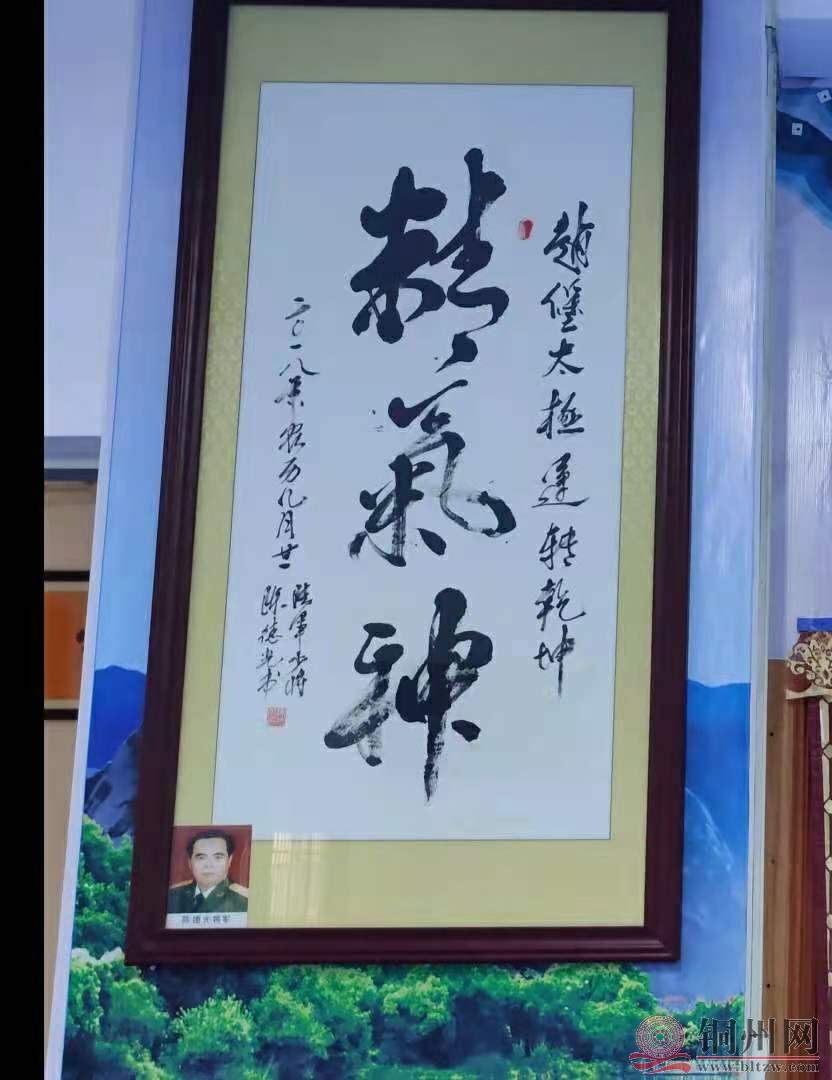 趙堡太極運转乾坤
精氣神
二〇一八年农历九月廿一
陆軍少将
陈德光书
陈德光将军
铜州网
www.bltzw.com